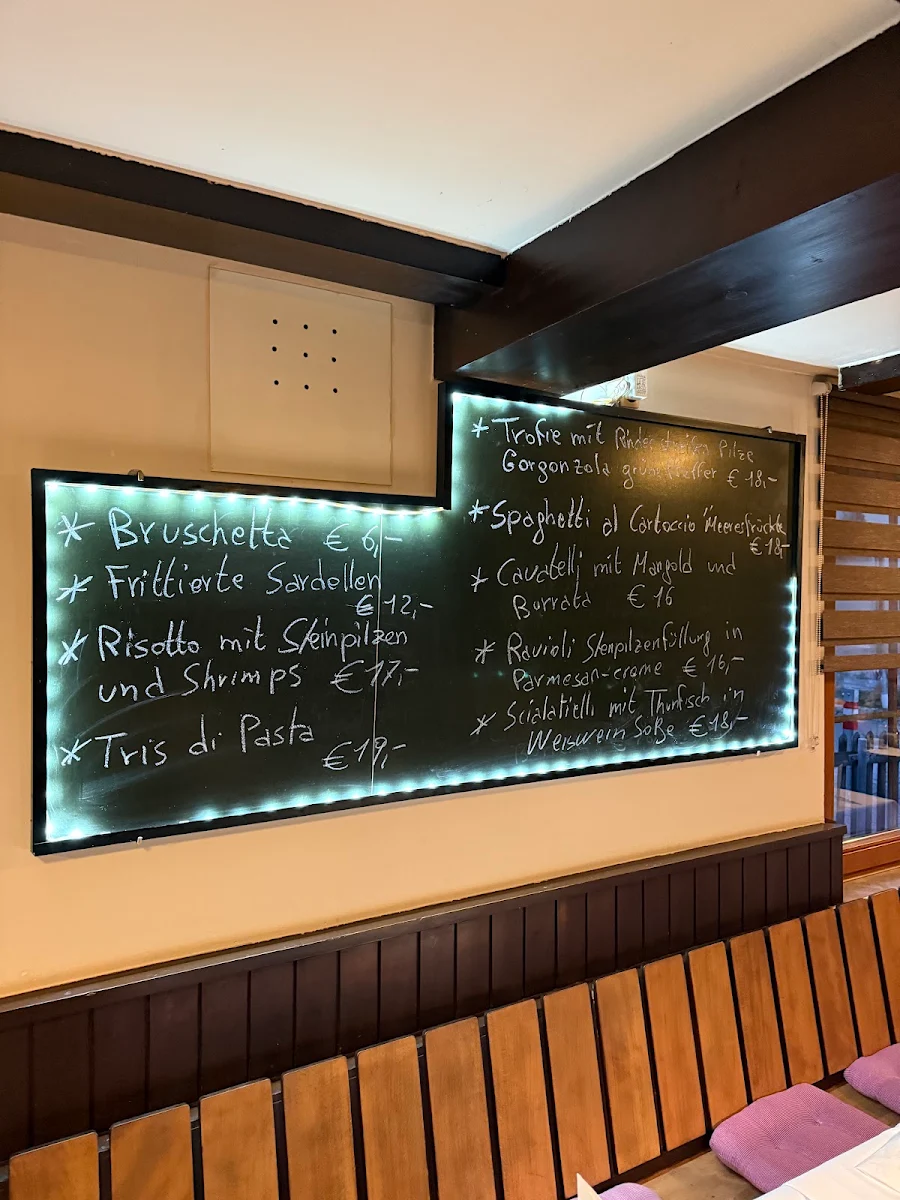 * Bruschetta € 6,-
* Frittierte Sardellen
€ 12,-
* Risotto mit Steinpilzen
und Shrimps € 17,-
* Tris di Pasta
€ 19,-
* Trofie mit Rinderstreifen Pilze
Gorgonzola grüner Pfeffer € 18,-
* Spaghetti al Cartoccio "Meeresfrüchte
€ 18,-
* Cavatelli mit Mangold und
Burrata € 16
* Ravioli Stenpilzenfüllung in
Parmesan-creme € 16,-
* Scialatielli mit Thunfisch in
Weiswein Soße € 18,-